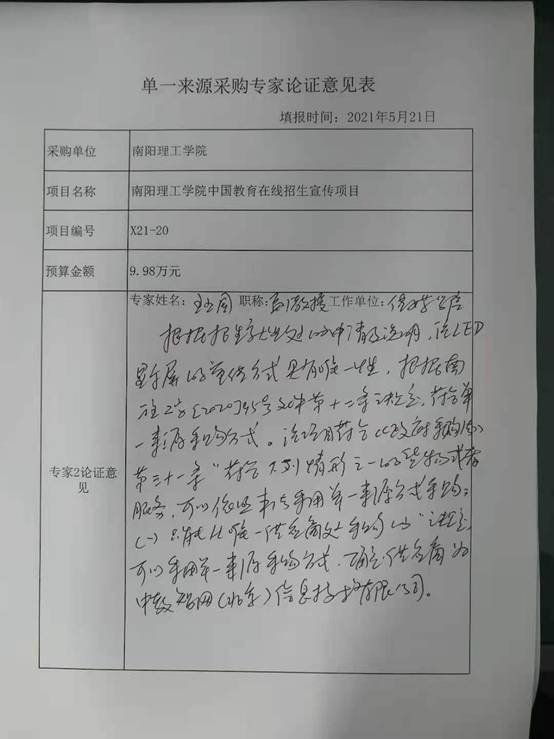 单一来源采购专家论证意见表
填报时间：2021年5月21日
采购单位 南阳理工学院
项目名称 南阳理工学院中国教育在线招生宣传项目
项目编号 X21-20
预算金额 9.98万元
专家2论证意见
专家姓名： 职称：副教授 工作单位：
根据招生就业处的申请及说明，该LED
显示屏的宣传方式具有唯一性，根据南
[2020]45号文件第十二条之规定，符合单
一来源采购方式。该项目符合《政府采购法》
第三十一条“符合下列情形之一的货物或者
服务，可以依照本法采用单一来源方式采购：
（一）只能从唯一供应商处采购的”之规定，
可以采用单一来源采购方式，确定供应商为
中教智网（北京）信息技术有限公司。